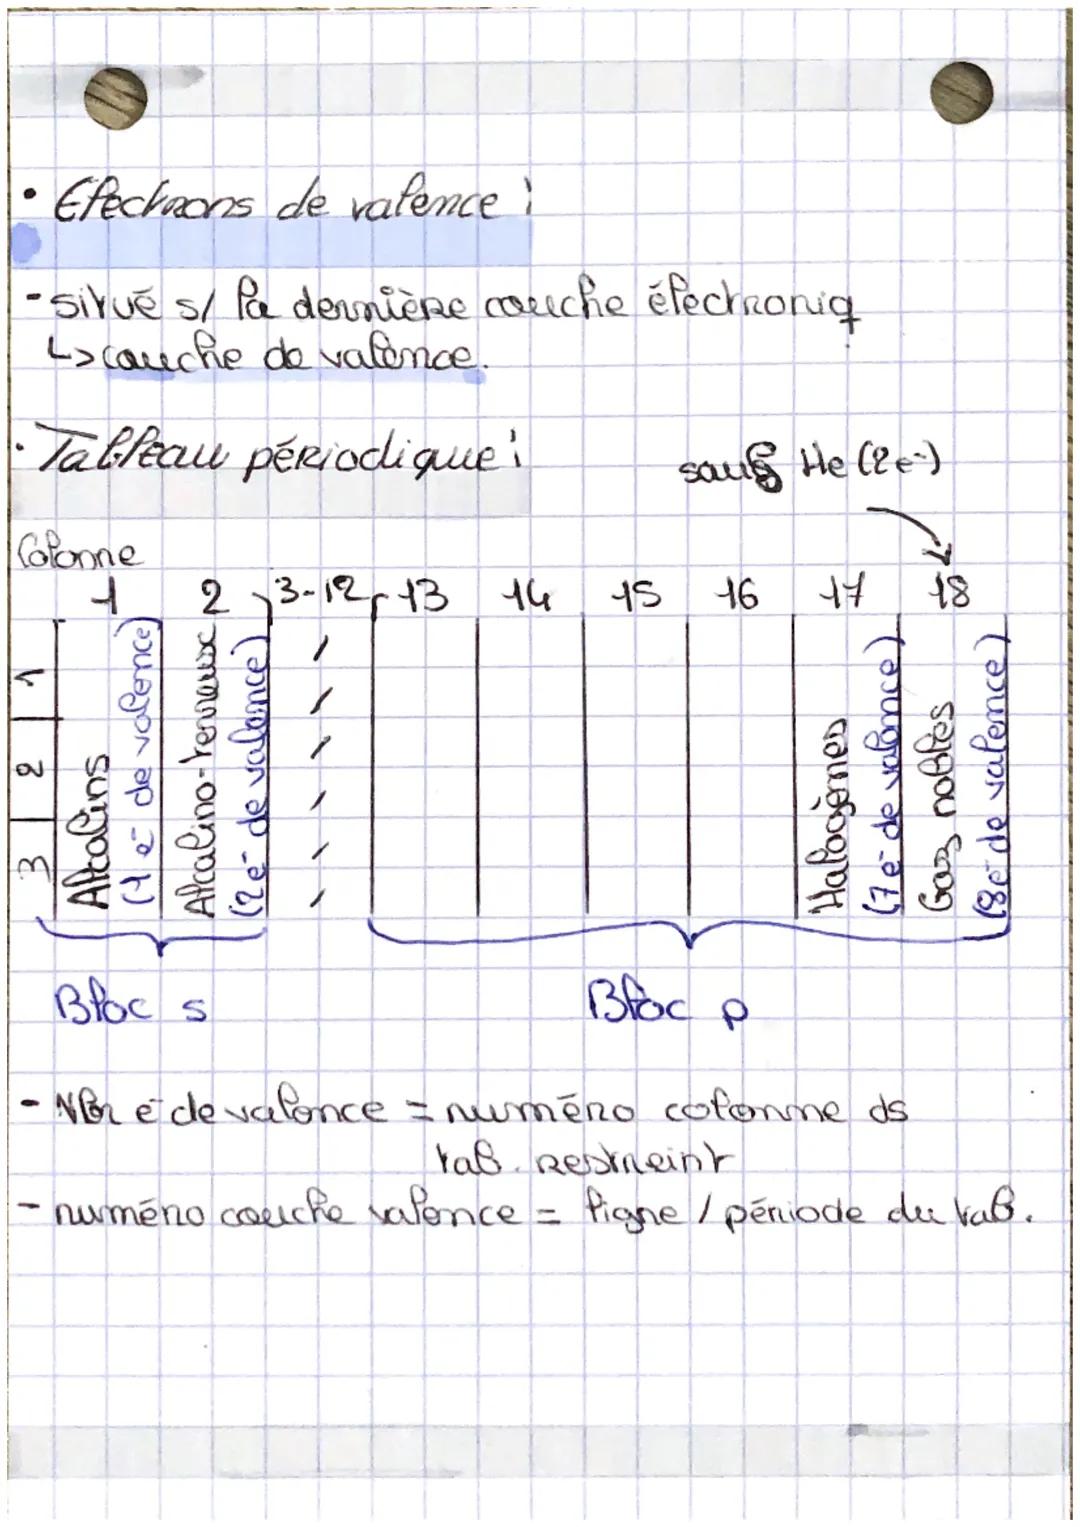 • Electrons de valence :
- situé s/ la dernière couche électroniq
↳ couche de valence.
• Tableau périodique :
sauf He (2e-)
Colonne
1 2 3-12 13 14 15 16 17 18
1
2
3
Alcalins
(1 e- de valence)
Alcalino-terreux
(2e- de valence)
Halogènes
(7e- de valence)
Gaz nobles
(8e- de valence)
Bloc s
Bloc p
- Nbr e- de valence = numéro colonne ds
tab. restreint
- numéro couche valence = ligne / période du tab.